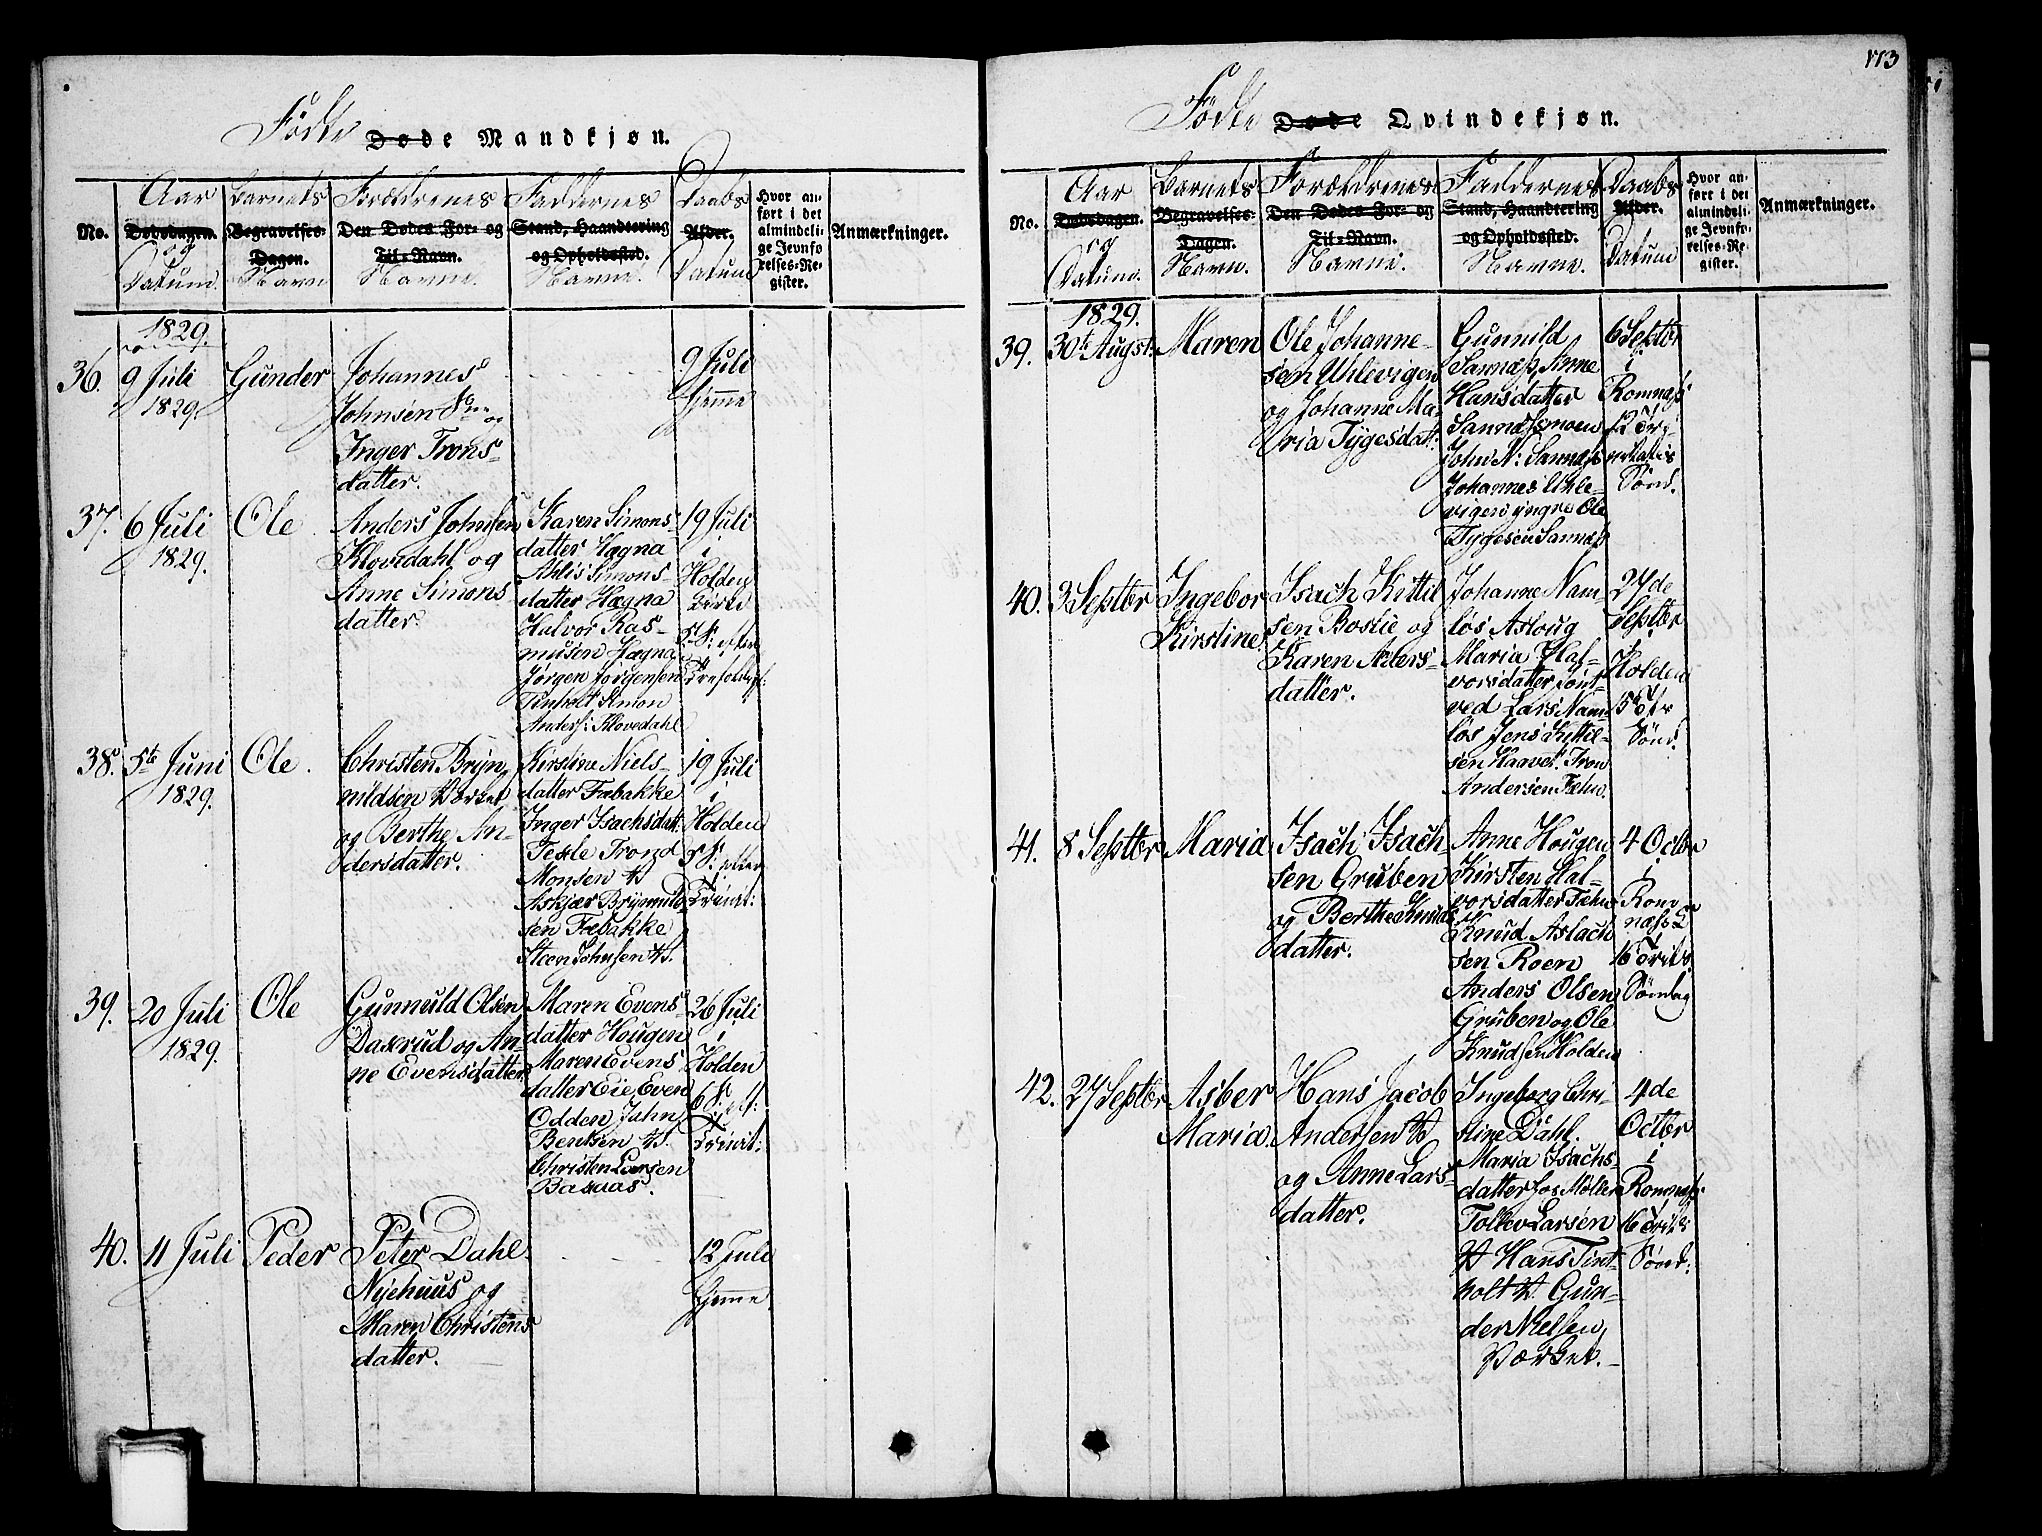 Fødte Døde Mandkjøn.
No.
Aar
Dødsdagen.
og
Datum.
Barnets
Begravelses-
Dagen.
Navn
Foreldrenes
Den Dødes For- og
Til-Navn.
Navne.
Faddernes
Stand, Haandtering
og Opholdssted.
Navne.
Daabs
Alder.
Datum
Hvor an-
ført i det
almindeli-
ge Jevnfø-
relses-Re-
gister.
Anmærkninger.
1829.
36.
9 Juli
1829.
Gunder
Johannes
Johnsen
og
Inger Trons-
datter.
9 Juli
hjemme
37.
6 Juli
1829.
Ole
Anders Johnsen
Klovedahl og
Anne Simons
datter.
Karen Simons-
datter Hægna
Simons-
datter Hægna
Halvor Ras-
musen Hægna
Jørgen Jørgensen
Tinholt Simon
Anders: Klovedahl
19 Juli
i
Holden
Kirke
5 S: efter
38.
5te Juni
1829.
Ole.
Christen Bryn-
nildsen Værket
og Berthe An-
dersdatter.
Kirstine Niels-
datter Fæbakke
Inger Isachsdatt:
Texle Trond
Monsen V.
Askjær Brynnild-
sen Fæbakke
Steen Johnsen V.
19 Juli
i
Holden
5 S: efter
Trinit:
39.
20 Juli
1829.
Ole
Gunnuld Olsen
Daxrud og An-
ne Evensdatter
Maren Evens-
datter Hougen
Maren Evens
datter Eie, Even
Odden John
Bentsen V.
Christen Larsen
Basaas.
26 Juli
i
Holden
6 S: eft:
Trinit:
40.
11 Juli
Peder
Peter Dahl
Nyehuus og
Maren Christens
datter.
12 Juli
hjemme
173
Fødte Døde Qvindekjøn.
No.
Aar
Dødsdagen.
og
Datum.
Barnets
Begravelses-
Dagen.
Navn.
Forældrenes
Den Dødes For- og
Til-Navn.
Navne.
Faddernes
Stand, Haandtering
og Opholdssted.
Navne.
Daabs
Alder.
Datum
Hvor an-
ført i det
almindeli-
ge Jevnfø-
relses-Re-
gister.
Anmærkninger.
1829.
39.
30te Augst:
Maren
Ole Johanne-
sen Uhlevigen
og Johanne Ma-
ria Tygesdatt:
Gunnild
Sannæs, Anne
Hansdatter
Sannæsmoen
John N: Sannæs
Johannes Uhle-
vigen yngre Ole
Tygesen Sannæs
6 Septbr
i
Romnæs
12
Sønd.
40.
3 Septbr
Ingebor
Kirstine.
Isach Kittil
sen Bostie og
Karen Anders-
datter.
Johanne Nam-
løs Asloug
Maria Hal-
vorsdatter Tint-
ved Lars Nam-
løs Jens Kittil-
sen Haavet. Tron
Andersen Fæhn.
27de
Septbr
i
Holden
15
Sønd.
41.
8 Septbr
Maria
Isach Isach-
sen Gruben
og Berthe Knuds
datter.
Anne Hougen
Kirsten Hal-
vorsdatter Fæhn
Knud Aslach
sen Roen
Anders Olsen
Gruben og Ole
Knudsen Holden
4 Octbr
i
Rom-
næs
16 Trits
Søndag
42.
27 Septbr
Asber
Maria.
Hans Jacob
Andersen V
og Anne Lars-
datter.
Ingeborg Chri-
stine Dahl.
Maria Isachs-
datter hos Møller
Tollev Larsen
V Hans Tint-
holt V. Gun-
der Nielsen
Værket.
4de
Octbr
i
Romnæs
16 Trits
Sønd: